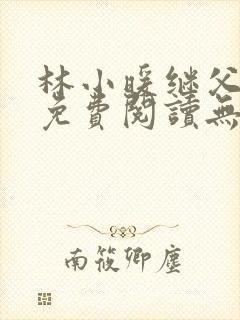 林小暖继父
免費閱讀無
南筱卿塵